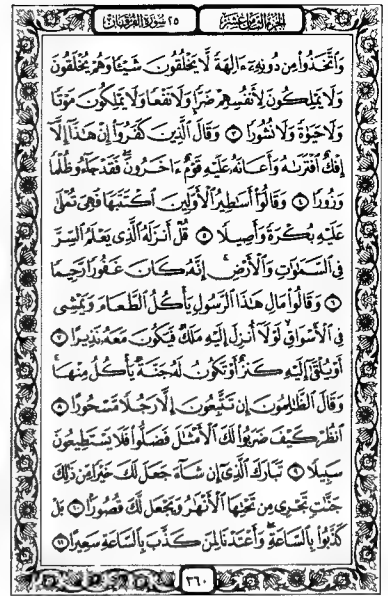 الجزء الثامن عشر
٢٥ سورة الفرقان
وَٱتَّخَذُوا۟ مِن دُونِهِۦٓ ءَالِهَةً لَّا يَخْلُقُونَ شَيْـًٔا وَهُمْ يُخْلَقُونَ
وَلَا يَمْلِكُونَ لِأَنفُسِهِمْ ضَرًّا وَلَا نَفْعًا وَلَا يَمْلِكُونَ مَوْتًا
وَلَا حَيَوٰةً وَلَا نُشُورًا ٣ وَقَالَ ٱلَّذِينَ كَفَرُوٓا۟ إِنْ هَـٰذَآ إِلَّآ
إِفْكٌ ٱفْتَرَىٰهُ وَأَعَانَهُۥ عَلَيْهِ قَوْمٌ ءَاخَرُونَ ۖ فَقَدْ جَآءُو ظُلْمًا
وَزُورًا ٤ وَقَالُوٓا۟ أَسَـٰطِيرُ ٱلْأَوَّلِينَ ٱكْتَتَبَهَا فَهِىَ تُمْلَىٰ
عَلَيْهِ بُكْرَةً وَأَصِيلًا ٥ قُلْ أَنزَلَهُ ٱلَّذِى يَعْلَمُ ٱلسِّرَّ
فِى ٱلسَّمَـٰوَٰتِ وَٱلْأَرْضِ ۚ إِنَّهُۥ كَانَ غَفُورًا رَّحِيمًا
٦ وَقَالُوا۟ مَالِ هَـٰذَا ٱلرَّسُولِ يَأْكُلُ ٱلطَّعَامَ وَيَمْشِى
فِى ٱلْأَسْوَاقِ ۙ لَوْلَآ أُنزِلَ إِلَيْهِ مَلَكٌ فَيَكُونَ مَعَهُۥ نَذِيرًا ٧
أَوْ يُلْقَىٰٓ إِلَيْهِ كَنزٌ أَوْ تَكُونُ لَهُۥ جَنَّةٌ يَأْكُلُ مِنْهَا ۚ
وَقَالَ ٱلظَّـٰلِمُونَ إِن تَتَّبِعُونَ إِلَّا رَجُلًا مَّسْحُورًا ٨
ٱنظُرْ كَيْفَ ضَرَبُوا۟ لَكَ ٱلْأَمْثَـٰلَ فَضَلُّوا۟ فَلَا يَسْتَطِيعُونَ
سَبِيلًا ٩ تَبَارَكَ ٱلَّذِىٓ إِن شَآءَ جَعَلَ لَكَ خَيْرًا مِّن ذَٰلِكَ
جَنَّـٰتٍ تَجْرِى مِن تَحْتِهَا ٱلْأَنْهَـٰرُ وَيَجْعَل لَّكَ قُصُورًۢا ١٠ بَلْ
كَذَّبُوا۟ بِٱلسَّاعَةِ ۖ وَأَعْتَدْنَا لِمَن كَذَّبَ بِٱلسَّاعَةِ سَعِيرًا ١١
٣٦٠